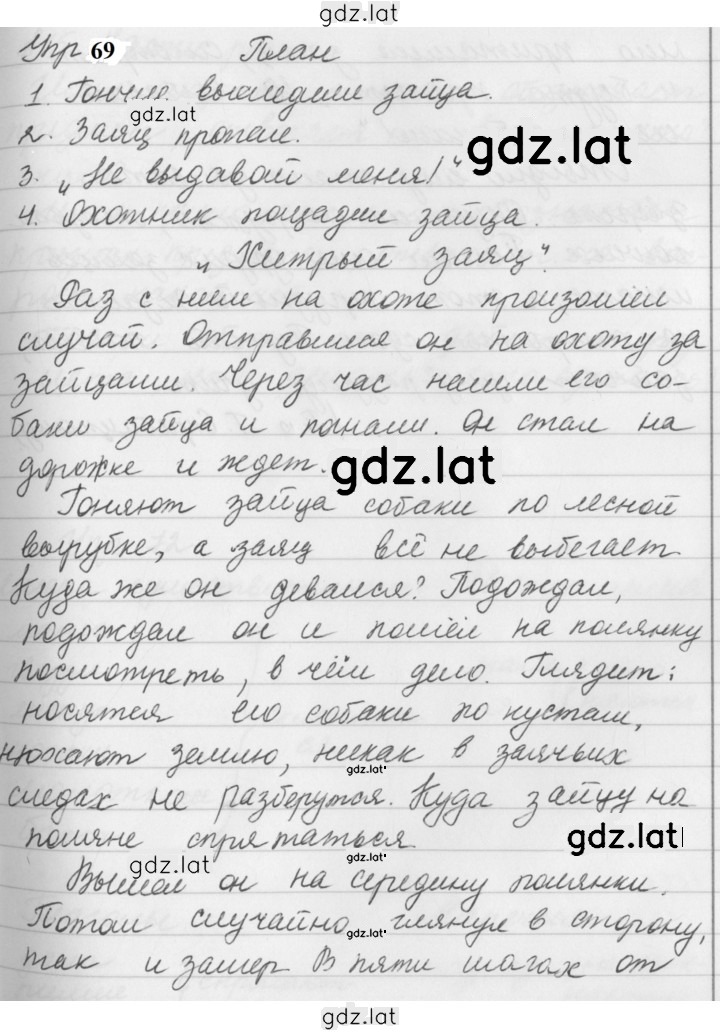 gdz.lat
Упр 69 План
1. Гончие выследили зайца.
gdz.lat
2. Заяц пропал.
gdz.lat
3. „Не выдавай меня!"
4. Охотник пощадил зайца.
„Хитрый заяц".
Раз с ним на охоте произошёл
случай. Отправился он на охоту за
зайцами. Через час нашли его со-
баки зайца и погнали. Он стал на
дорожке и ждет.
gdz.lat
Гоняют зайца собаки по лесной
вырубке, а заяц всё не выбегает
Куда же он девался? Подождал,
подождал он и пошёл на полянку
посмотреть, в чём дело. Глядит:
носятся его собаки по кустам,
нюхают землю, никак в заячьих
gdz.lat
следах не разберутся. Куда зайцу на
поляне спрятаться.
gdz.lat
gdz.lat
Вышел он на середину полянки.
Потом случайно глянул в сторону,
gdz.lat
так и замер В пяти шагах от
gdz.lat